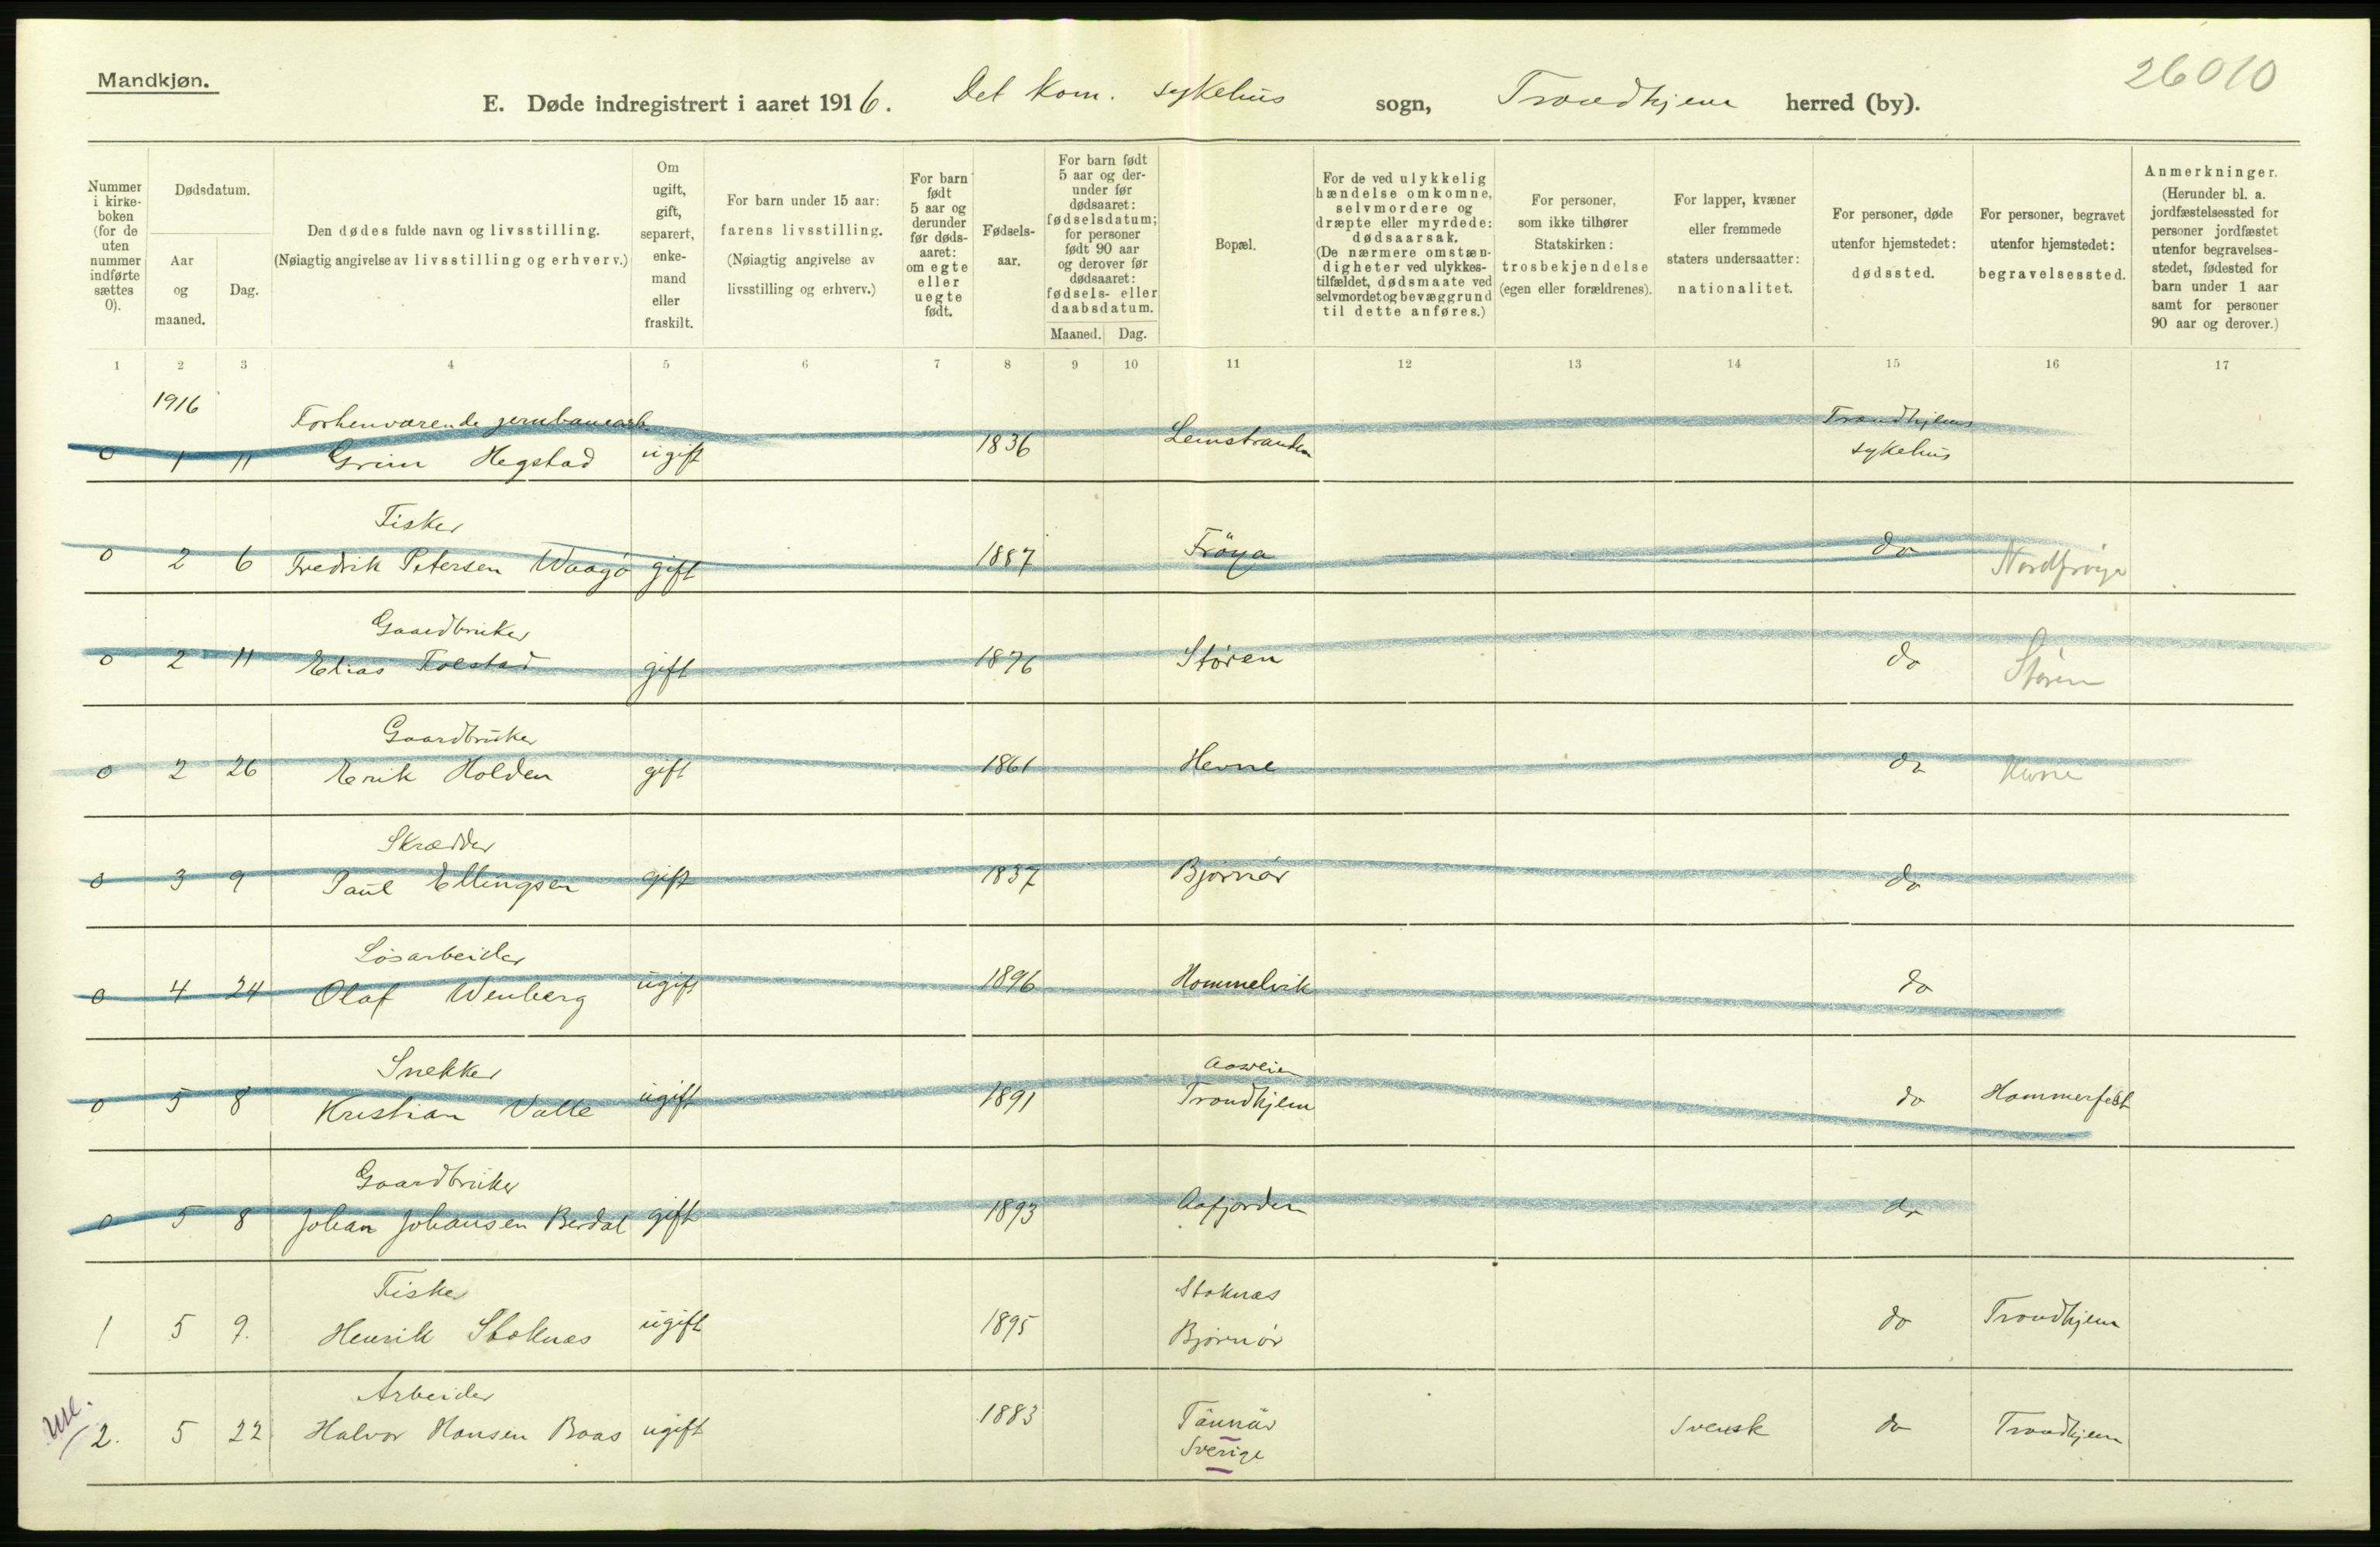 Mandkjøn.
26010
E. Døde indregistrert i aaret 1916. Det kom. sykehus sogn, Trondhjem herred (by).
Nummer i kirkeboken (for de uten nummer indførte sættes 0).
Dødsdatum.
Aar og maaned.
Dag.
Den dødes fulde navn og livsstilling.
(Nøiagtig angivelse av livsstilling og erhverv.)
Om ugift, gift, separert, enkemand eller fraskilt.
For barn under 15 aar: farens livsstilling. (Nøiagtig angivelse av livsstilling og erhverv.)
For barn født 5 aar og derunder før dødsaaret: om egte eller uegte født.
Fødselsaar.
For barn født 5 aar og derunder før dødsaaret: fødselsdatum; for personer født 90 aar og derover før dødsaaret: fødsels- eller daabsdatum.
Maaned. Dag.
Bopæl.
For de ved ulykkelig hændelse omkomne, selvmordere og dræpte eller myrdede: dødsaarsak. (De nærmere omstændigheter ved ulykkestilfældet, dødsmaate ved selvmordet og bevæggrund til dette anføres.)
For personer, som ikke tilhører Statskirken: trosbekjendelse (egen eller forældrenes).
For lapper, kvæner eller fremmede staters undersaatter: nationalitet.
For personer, døde utenfor hjemstedet: dødssted.
For personer, begravet utenfor hjemstedet: begravelsessted.
Anmerkninger. (Herunder bl. a. jordfæstelsessted for personer jordfæstet utenfor begravelsesstedet, fødested for barn under 1 aar samt for personer 90 aar og derover.)
1 2 3 4 5 6 7 8 9 10 11 12 13 14 15 16 17
1916
Forhenværende jernbanearb
0 1 11 Grim Hegstad ugift 1836 Leinstranden Trondhjems sykehus
Fisker
0 2 6 Fredrik Petersen Waagø gift 1887 Fröya do Nordfröya
Gaardbruker
0 2 11 Elias Folstad gift 1876 Støren do Støren
Gaardbruker
0 2 26 Erik Holden gift 1861 Hevne do Hevne
Skrædder
0 3 9 Paul Ellingsen gift 1837 Bjørnør do
Løsarbeider
0 4 24 Olaf Wenberg ugift 1896 Hommelvik do
Snekker
0 5 8 Kristian Valle ugift 1891 Aasveien Trondhjem do Hammerfest
Gaardbruker
0 5 8 Johan Johansen Berdal gift 1893 Aafjorden do
Fisker
1 5 9. Henrik Stoknæs ugift 1895 Stoknæs Bjørnør do Trondhjem
Arbeider
2. 5 22 Halvor Hansen Baas ugift 1883 Tännäs Sverige Svensk do Trondhjem